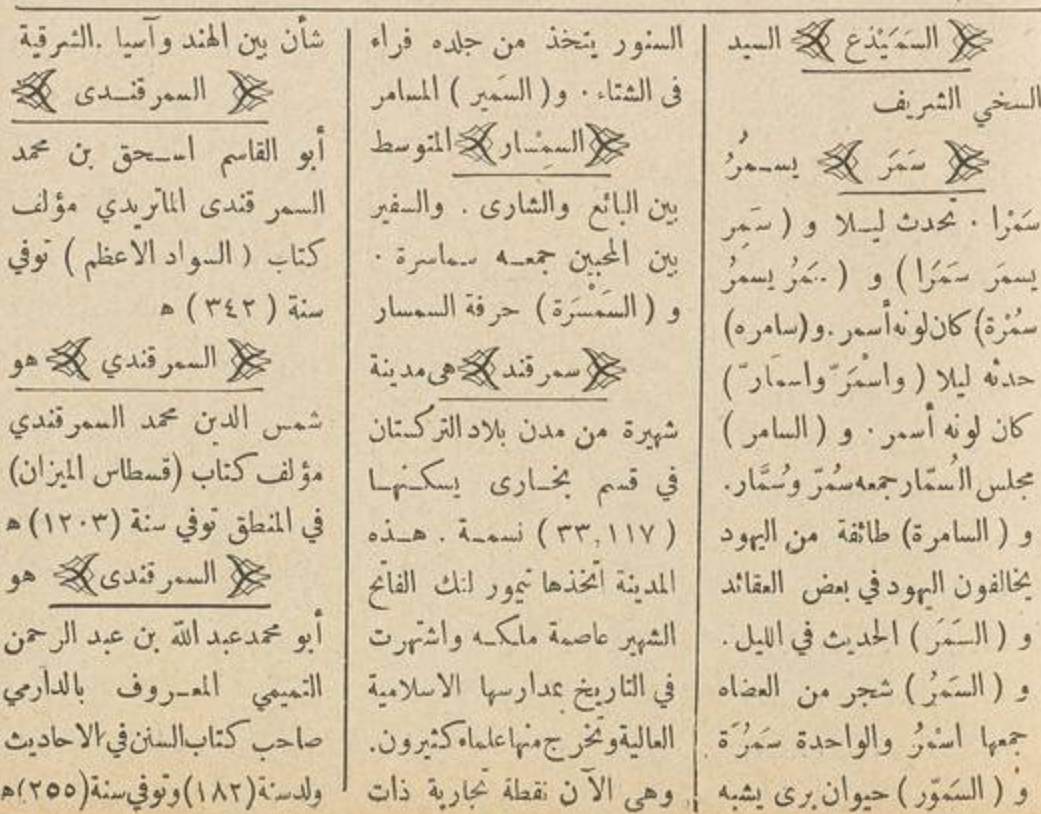 السَمَيْذع السيد
السخي الشريف
سَمَرَ يسـمرُ
سَمْرا . تحدث ليـلا و ( سَمِر
يسمَر سَمَرا ) و ( سَمُرَ يسمرُ
سمُرْة) كان لونه أسمر . و(سامره)
حدثه ليلا ( واسْمَرّ واسمارّ )
كان لونه أسمر . و ( السامر )
مجلس السُمّار جمعه سُمّرّ وسُمَّار.
و ( السامرة) طائفة من اليهود
يخالفون اليهود في بعض العقائد
و ( السَّمَرَ ) الحديث في الليل .
و ( السَّمُرُ ) شجر من العضاه
جمعها اسْمُرُ والواحدة سَمُرَة
و ( السَمّوّر ) حيوان برى يشبه
السنور يتخذ من جلده فراء
فى الشتاء . و ( السَمير ) المسامر
السِمْسار المتوسط
بين البائع والشارى . والسفير
بين المحبين جمعـه سماسرة .
و ( السَمْسَرَة) حرفة السمسار
سمرقند هى مدينة
شهيرة من مدن بلاد التركستان
في قسم بخـارى يسكنهـا
( ٣٣,١١٧ ) نسمـة . هـذه
المدينة اتخذها تيمور لنك الفاتح
الشهير عاصمة ملكـه واشتهرت
في التاريخ بمدارسها الاسلامية
العالية وتخرج منها علماء كثيرون.
وهى الآن نقطة تجارية ذات
شأن بين الهند وآسيا .الشرقية
السمرقنـدى
أبو القاسم اسـحق بن محمد
السمر قندى الماتريدي مؤلف
كتاب ( السواد الاعظم ) توفي
سنة ( ٣٤٢ ) ه
السمرقندي هو
شمس الدين محمد السمرقندي
مؤلف كتاب (قسطاس الميزان)
في المنطق توفي سنة (١٢٠٣) ه
السمرقندى هو
أبو محمد عبد الله بن عبد الرحمن
التميمي المعـروف بالدارمي
صاحب كتاب السنن في الاحاديث
ولد سنة (١٨٢) وتوفي سنة (٢٥٥)ه